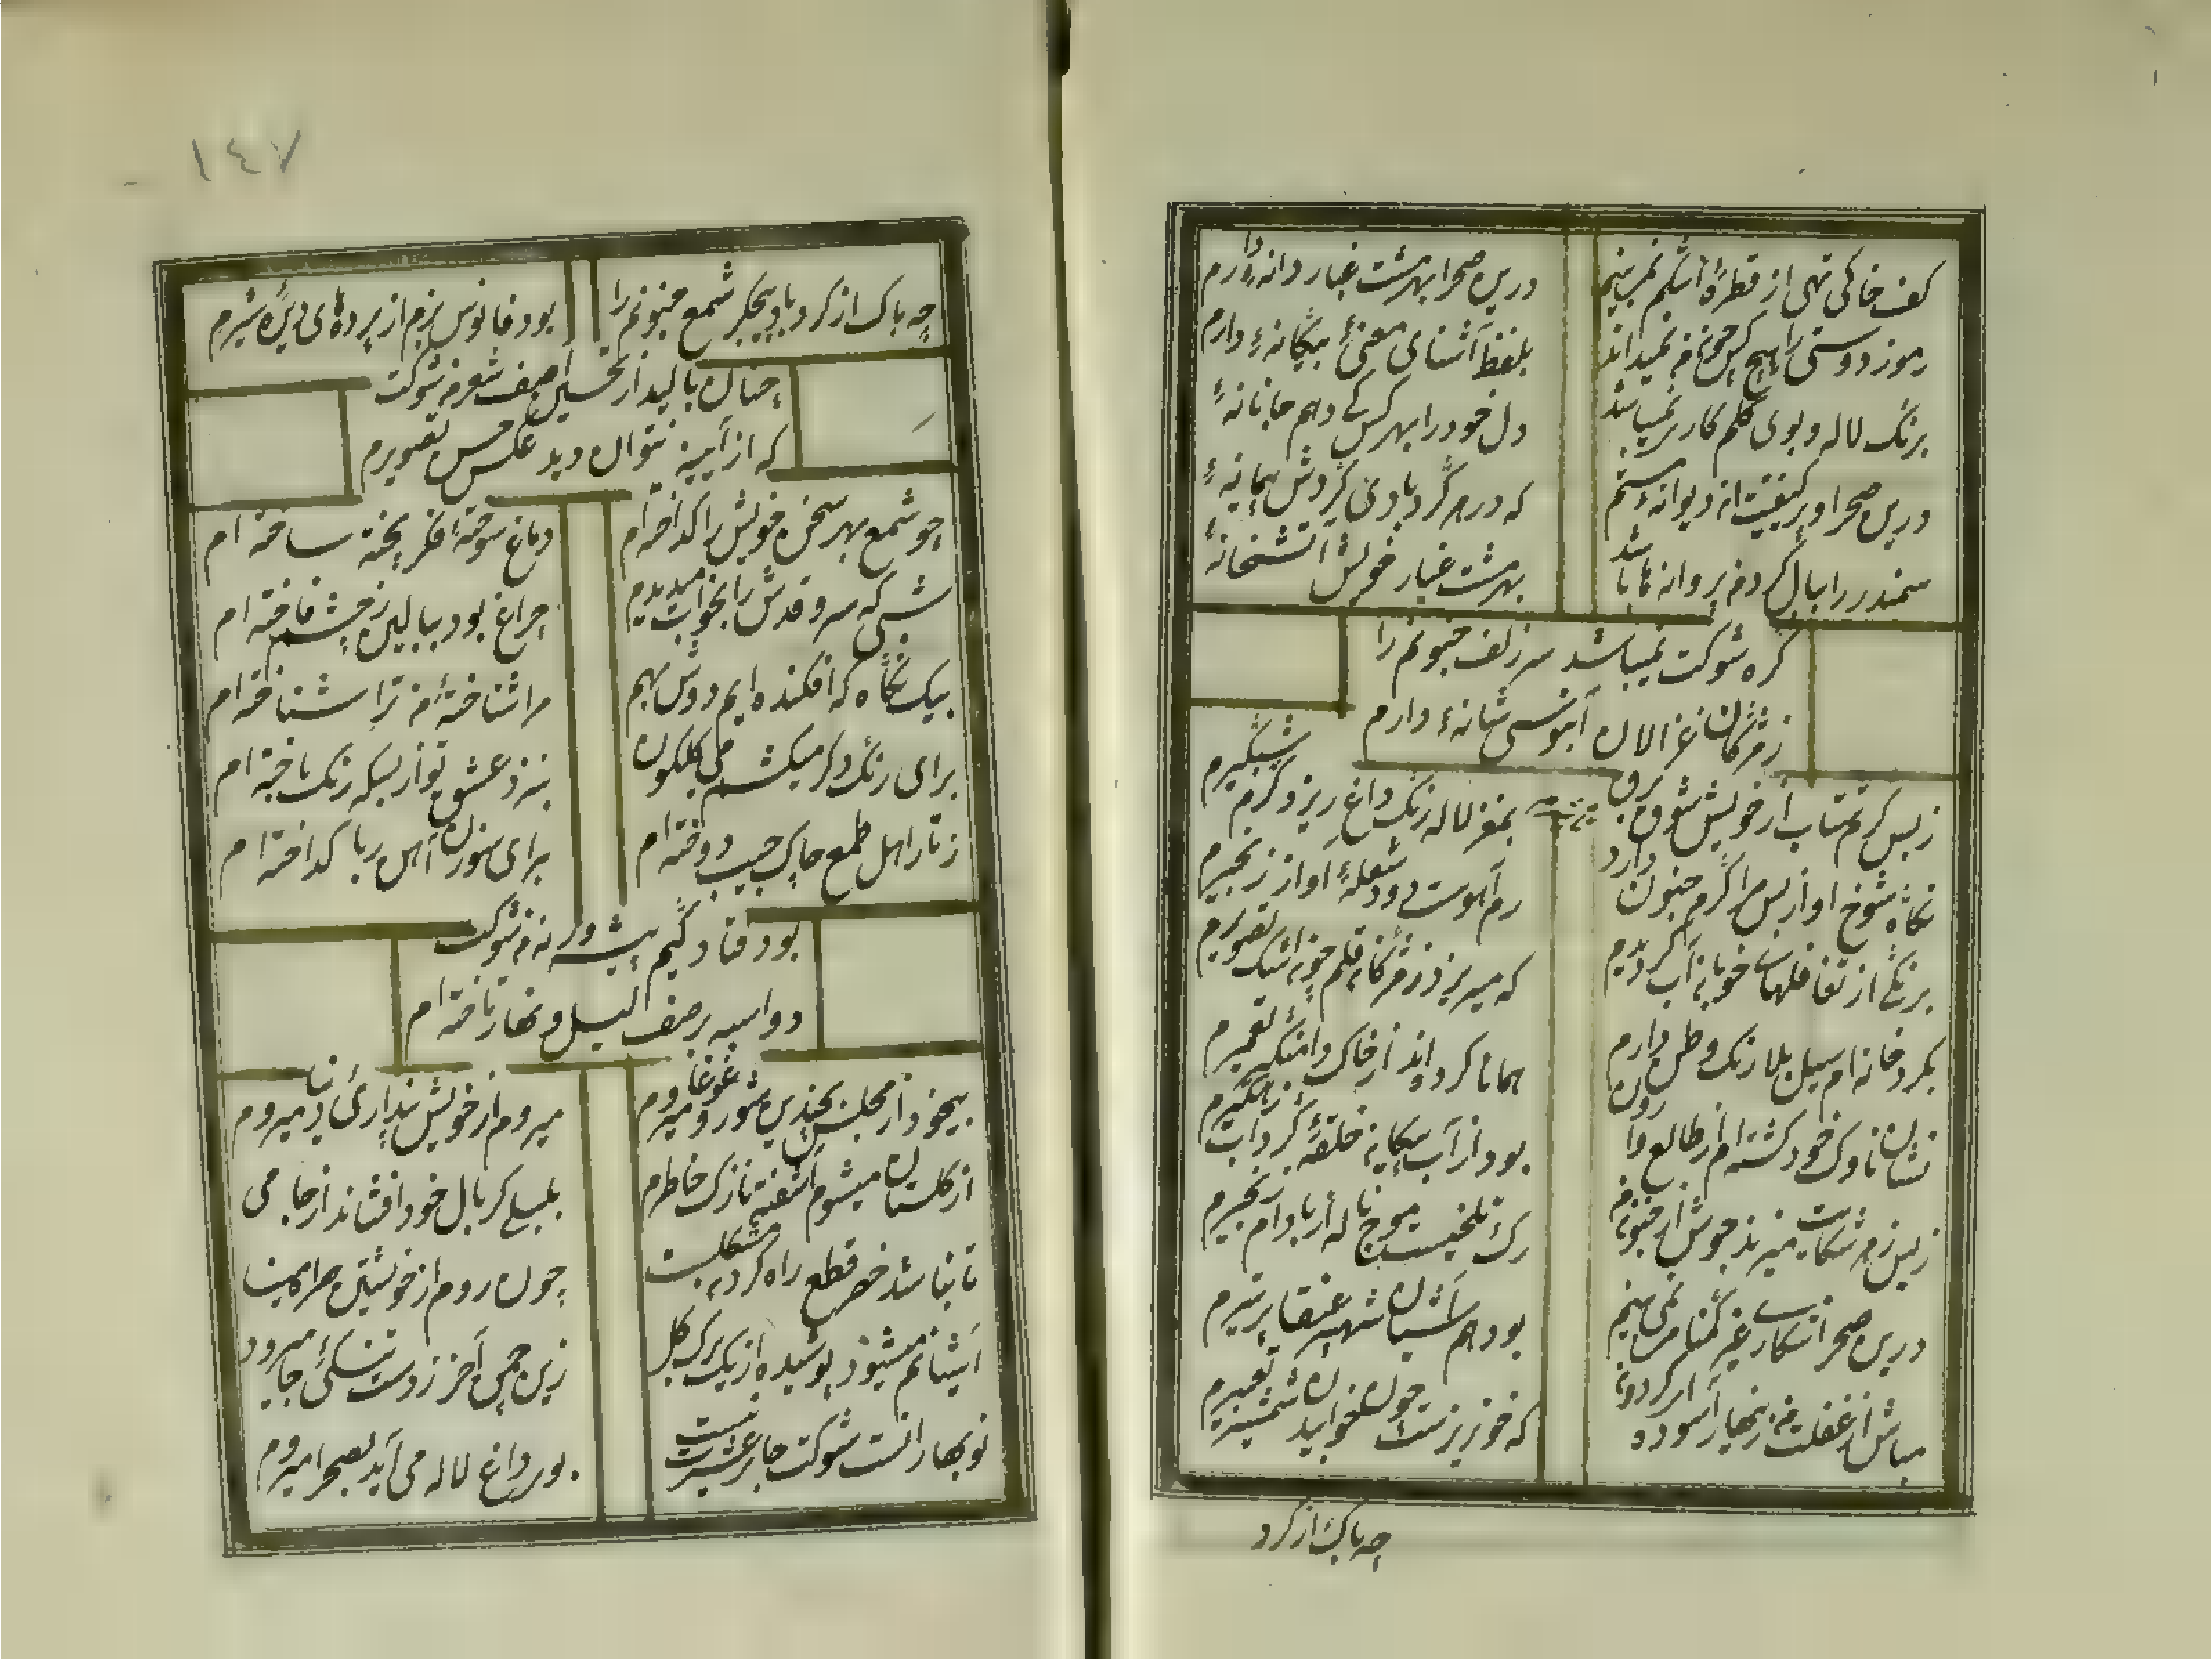 کف خاکی تهی از قطرهٔ اشکم نمی بینم
درین صحرا بهر مشت غبار دانهٔ دارم
رموز دوستی را هیچکس چون من نمیداند
بلفظ آشنای معنیٔ بیگانهٔ دارم
برنگ لاله و بوی گلم کار نمیباشد
دل خود را بهر کس کی دهم جانانهٔ
درین صحرا و پر کیفیت از دیوانهٔ مستم
که در هر گردبادی گردش پیمانهٔ
سمندر را ببال گرد من پروانها باشد
بهر مشت غبار خویش آتشخانهٔ
گره شوکت نمیباشد سر زلف جنونم را
ز مژگان غزالان آبنوسی شانهٔ دارم
ز بس گرم شتاب از خویش شوق برق
بمغز لاله رنگ داغ ریزد گرم شبگیرم
نگاه شوخ او از بس مرا گرم جنون دارد
رم آهوست دود شعلهٔ آواز زنجیرم
برنگی از تغافلهای خوبان آب گردیدم
که میریزد ز مژگان قلم چون اشک تصویرم
بگرد خانه ام سیل بلا رنگ وطن دارم
همانا کرده اند از خاک دامنگیر تعمیرم
نشان ناوک خود گشته ام از طالع وارون
بود از آب پیکان حلقهٔ گرداب زهگیرم
ز بس زهر شکایت میزند جوش از جنون من
رگ تلخیست موج ناله از بادام زنجیرم
درین صحرا شکاری غیر گمنامی نمی بینم
بود هم آشیان شهپر عنقا پر تیرم
مباش از غفلت من زینهار آسوده ای گردون
که خونریزست چون خوابیدن شمشیر تعبیرم
چه باک از گرد
١٤٧
چه باک از گرد باد پیکر شمع جنونم را
بود فانوس بزم از پرده های دیدهٔ شیرم
چنان بالید از تحسین آصف شعر من شوکت
که از آیینه نتوان دید عکس حسن تصویرم
چو شمع بهر سخن خویش را گداخته ام
دماغ سوخته ام فکر پخته ساخته ام
شبی که سرو قدش را بخواب میدیدم
چراغ بود ببالین ز چشم فاخته ام
بیک نگاه که افکنده ایم دوش بهم
مرا شناختهٔ من ترا شناخته ام
برای رنگ دگر میکشم می گلگون
بنزد عشق تو از بسکه رنگ باخته ام
ز تار اهل طمع چاک جیب دوخته ام
برای سوزن آهن ربا گداخته ام
بود قناد گیم پیشه ورنه من شوکت
دو اسبه بر صف لیل و نهار تاخته ام
بیخود از مجلس بچندین شور و غوغا میروم
میروم از خویش پنداری ز دنیا میروم
از گلستان میشوم آشفته نازک خاطرم
بلبلی گر بال خود افشاند از جا می
تا نباشد خضر قطع راه کردن مشکلست
چون روم از خویشتن همراه مینا
آشیانم میشود پوشیده از یک برگ گل
زین چمن آخر ز دست تنگی جا میرود
نوبهارانست شوکت جای عشرت نیست
بوی داغ لاله می آید بصحرا میروم